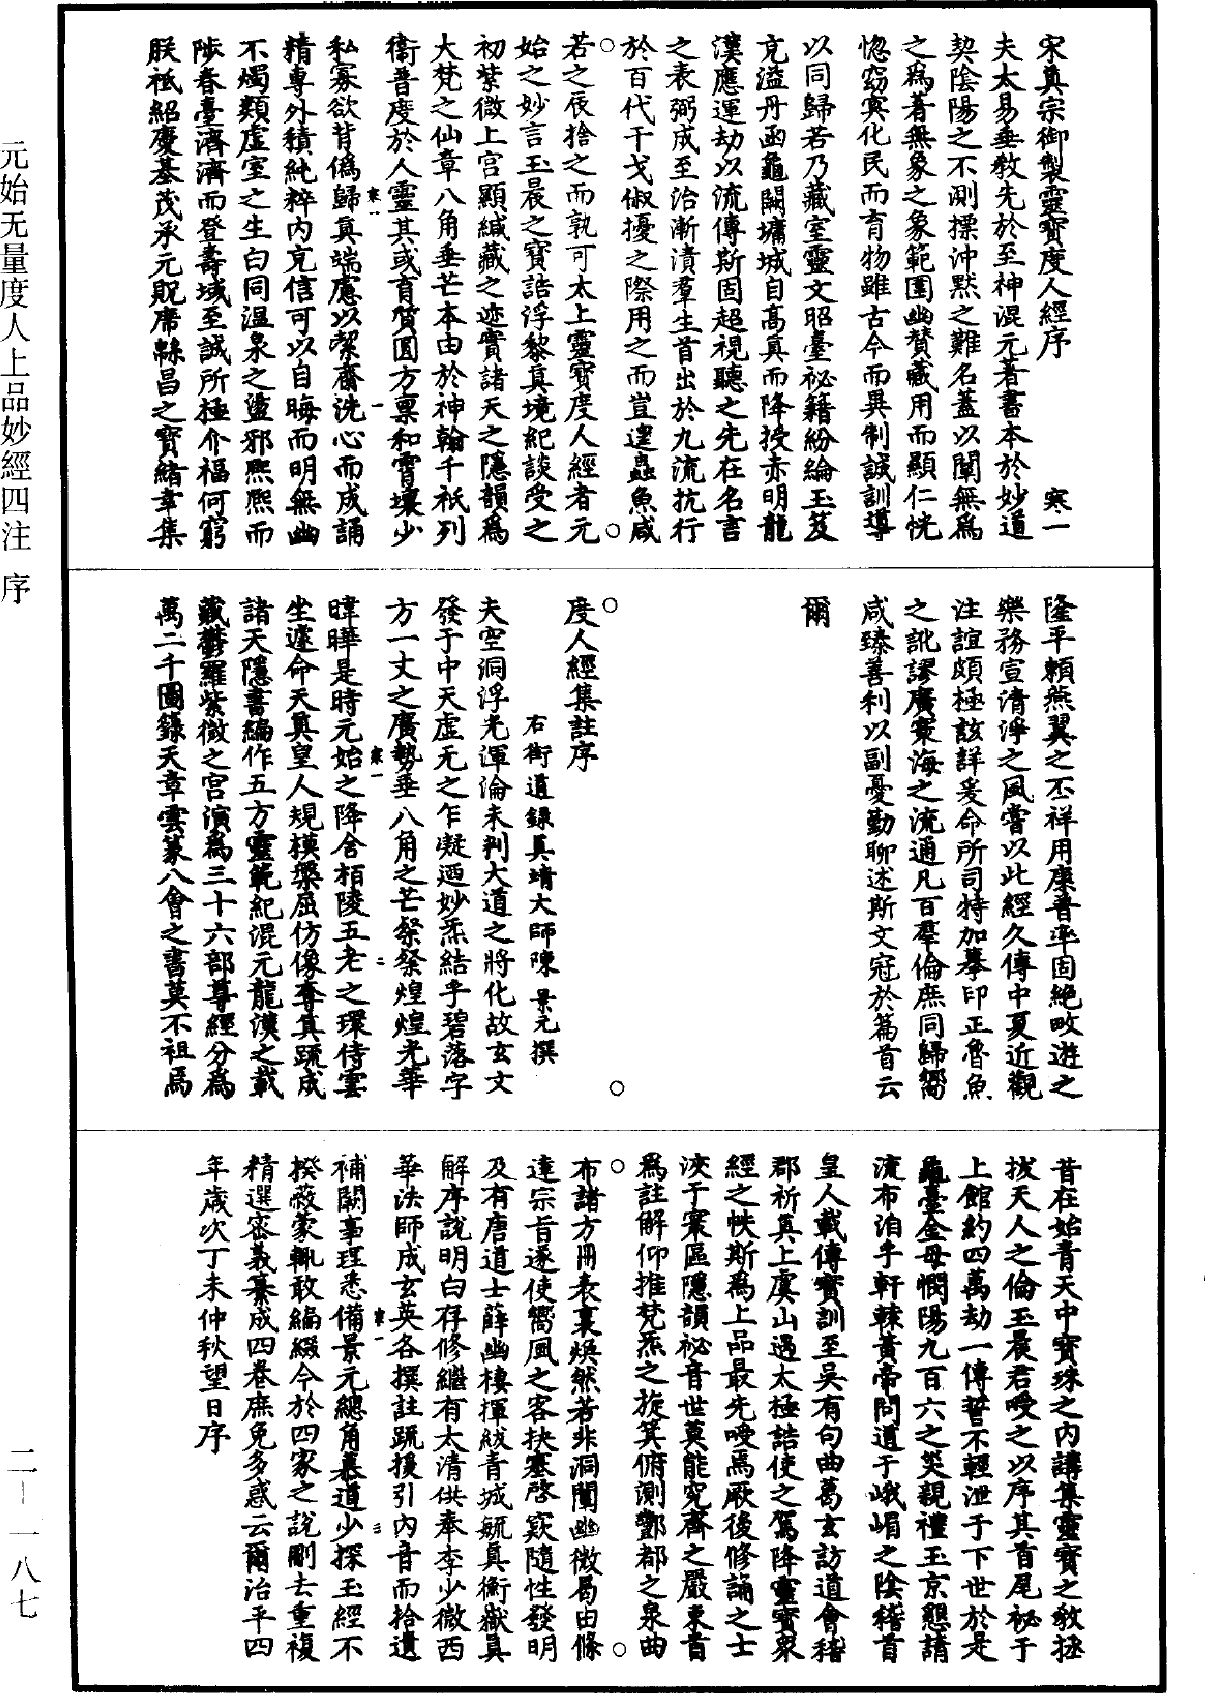 宋真宗御製靈寶度人經序　寒一
夫太易垂教先於至神混元著書本於妙道
契陰陽之不測摽沖默之難名蓋以闡無為
之為著無象之象範圍幽贊藏用而顯仁恍
惚窈冥化民而育物雖古今而異制誠訓導
以同歸若乃藏室靈文昭臺祕籍紛綸玉笈
充溢丹函龜闕墉城自高真而降授赤明龍
漢應運劫以流傳斯固超視聽之先在名言
之表弼成至治漸漬羣生首出於九流抗行
於百代干戈俶擾之際用之而豈遑蟲魚咸
若之辰捨之而孰可太上靈寶度人經者元
始之妙言玉晨之寶誥浮黎真境紀談受之
初紫微上宮顯緘藏之迹實諸天之隱韻為
大梵之仙章八角垂芒本由於神翰千祇列
衛普度於人靈其或育質圓方稟和霄壤少
私寡欲背偽歸真端慮以潔齋洗心而成誦
精專外積純粹內充信可以自晦而明無幽
不燭類虛室之生白同溫泉之盪邪熙熙而
陟春臺濟濟而登壽域至誠所極介福何窮
朕祗紹慶基茂承元貺席緜昌之寶緒幸集
隆平賴燕翼之丕祥用康普率固絶畋遊之
樂務宣清淨之風嘗以此經久傳中夏近觀
注誼頗極該詳爰命所司特加摹印正魯魚
之訛謬廣寰海之流通凡百羣倫庶同歸嚮
咸臻善利以副憂勤聊述斯文冠於篇首云
爾
度人經集註序
右街道錄真靖大師陳景元撰
夫空洞浮光渾淪未判大道之將化故玄文
發于中天虛无之乍凝迺妙炁結乎碧落字
方一丈之廣勢垂八角之芒祭祭煌煌光華
暐曄是時元始之降舍栢陵五老之環侍雲
坐遽命天真皇人規模槃屈仿像奪真䟽成
諸天隱書編作五方靈範紀混元龍漢之載
藏鬱羅紫微之宮演為三十六部尊經分為
萬二千圖籙天章雲篆八會之書莫不祖焉
昔在始青天中寶珠之內講集靈寶之教拯
拔天人之倫玉晨君受之以序其首尾祕于
上館約四萬劫一傳誓不輕泄于下世於是
龜臺金母憫陽九百六之災親禮玉京懇請
流布洎乎軒轅黃帝問道于峨嵋之陰稽首
皇人載傳寶訓至吳有句曲葛玄訪道會稽
郡祈真上虞山遇太極誥使之駕降靈寶眾
經之帙斯為上品最先受焉厥後修誦之士
浹于寰區隱韻祕音世莫能究齊之嚴東首
為註解仰推梵炁之旋箕俯測酆都之泉曲
布諸方冊表裏煥然若非洞闡幽微曷由條
達宗旨遂使嚮風之客抉塞啓竅隨性發明
及有唐道士薛幽棲揮紱青城毓真衡嶽真
解序說明白存修繼有太清供奉李少微西
華法師成玄英各撰註䟽援引內音而拾遺
補闕事理悉備景元總角慕道少探玉經不
揆蔽蒙輒敢編綴今於四家之說刪去重複
精選密義纂成四卷庶免多惑云爾治平四
年歲次丁未仲秋望日序
元始无量度人上品妙經四注　序
二—一八七